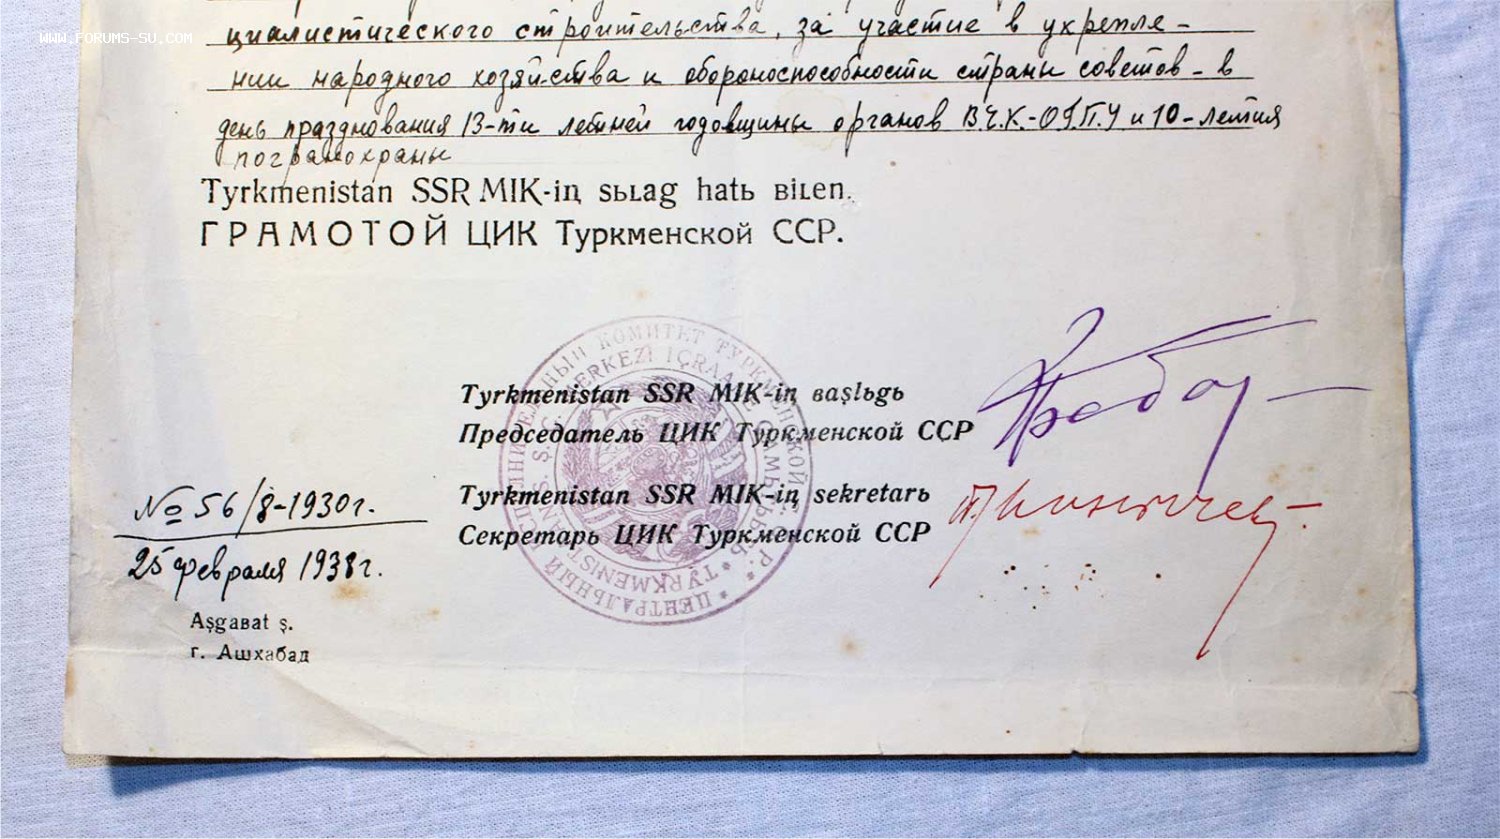 WWW.FORUMS-SU.COM
циалистического строительства, за участие в укрепле-
нии народного хозяйства и обороноспособности страны советов - в
день празднования 13-ти летней годовщины органов В.Ч.К.-ОГПУ и 10-летия
погранохраны
Tyrkmenistan SSR MIK-iꞑ sьlag hatь вilen.
ГРАМОТОЙ ЦИК Туркменской ССР.
Tyrkmenistan SSR MIK-iꞑ вaşlьgь
Председатель ЦИК Туркменской ССР
Tyrkmenistan SSR MIK-iꞑ sekretarь
Секретарь ЦИК Туркменской ССР
ЦЕНТРАЛЬНЫЙ ИСПОЛНИТЕЛЬНЫЙ КОМИТЕТ ТУРКМЕНСКОЙ С.С.Р.
TYRKMENIST. S.S.Ç. MERKEZI IÇRAA
№ 56/8-1930г.
25 февраля 1938г.
Aşgaвat ş.
г. Ашхабад